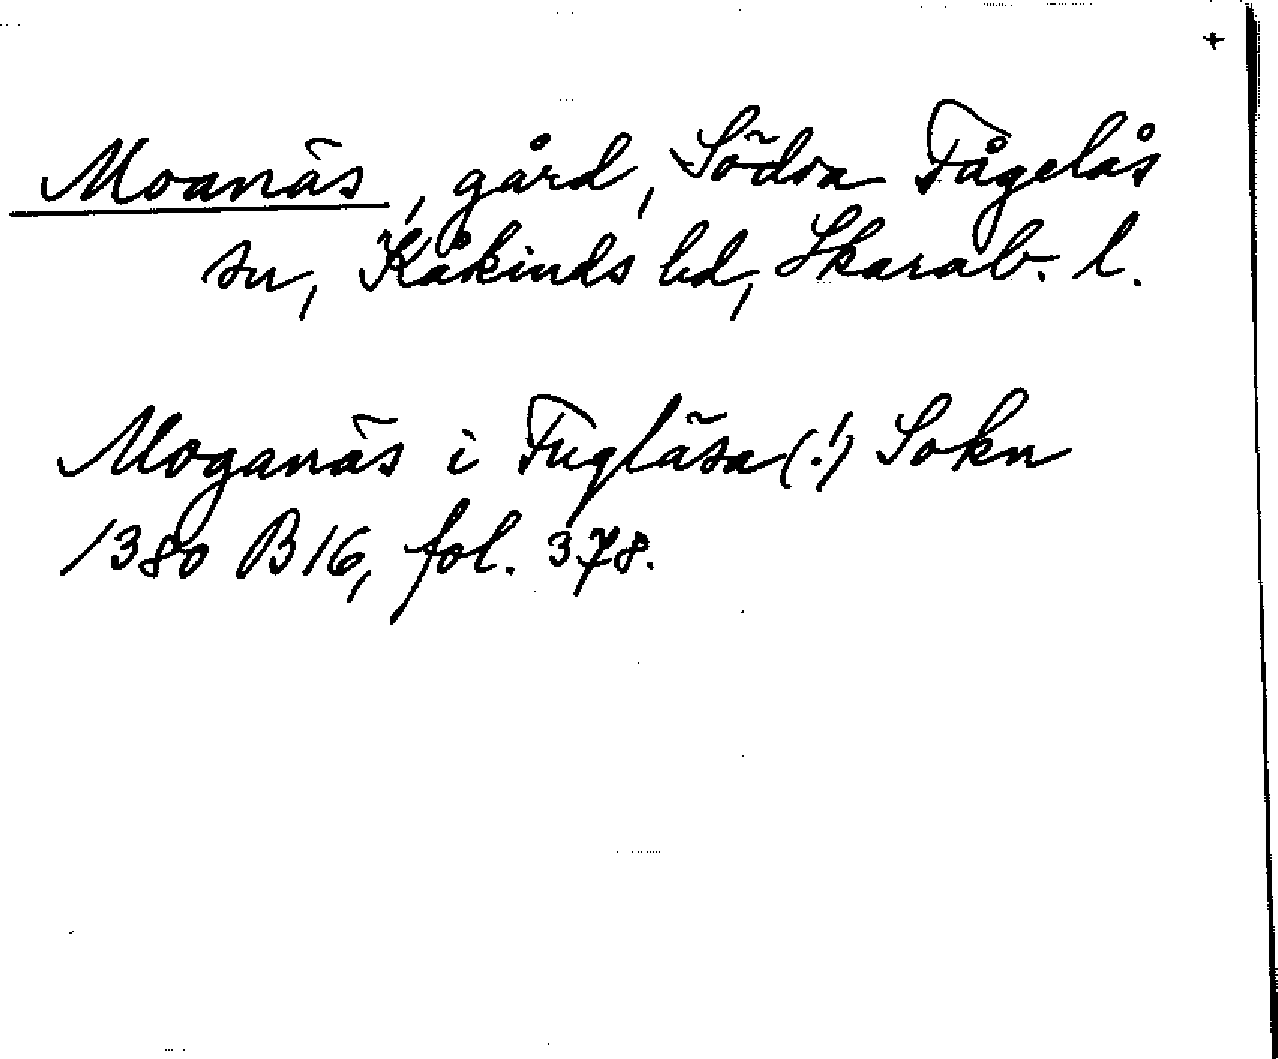 +
Moanäs, gård, Södra Fågelås
sn, Kåkinds hd, Skarab. l.
Moganäs i Fugläsa (!) Sokn
1380 B16, fol. 378.